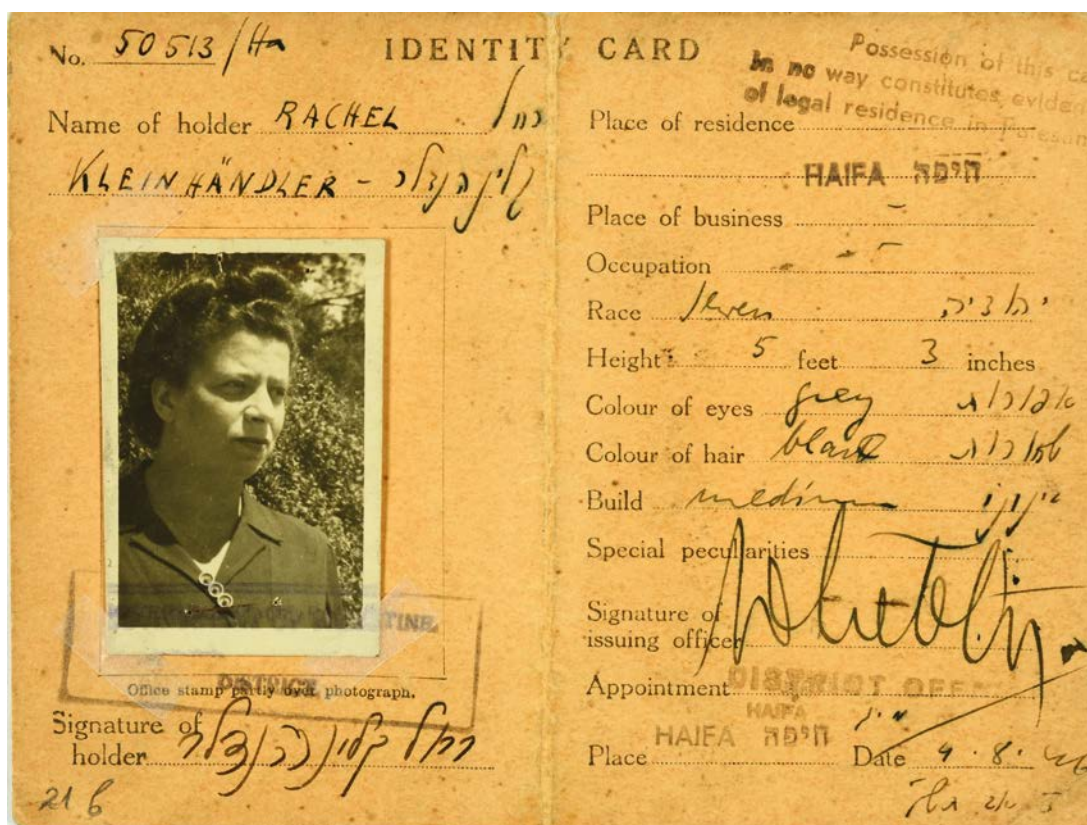 No. 50513/Ha
IDENTITY CARD
Name of holder RACHEL רחל
KLEINHÄNDLER - קליינהנדלר
Office stamp partly over photograph.
DISTRICT
Signature of
holder רחל קליינהנדלר
21 6
Possession of this
in no way constitutes
of legal residence in
Place of residence
HAIFA חיפה
Place of business -
Occupation -
Race יהודיה
Height 5 feet 3 inches
Colour of eyes grey אפורות
Colour of hair black שחורות
Build medium בינוני
Special peculiarities
Signature of
issuing officer
Appointment DISTRICT
HAIFA
HAIFA חיפה
Place Date 4.8.